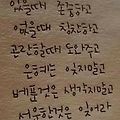 있을때 존중하고
없을때 칭찬하고
곤란할때 도와주고
은혜는 잊지말고
베푼것은 생각지말고
서운한것은 잊어라